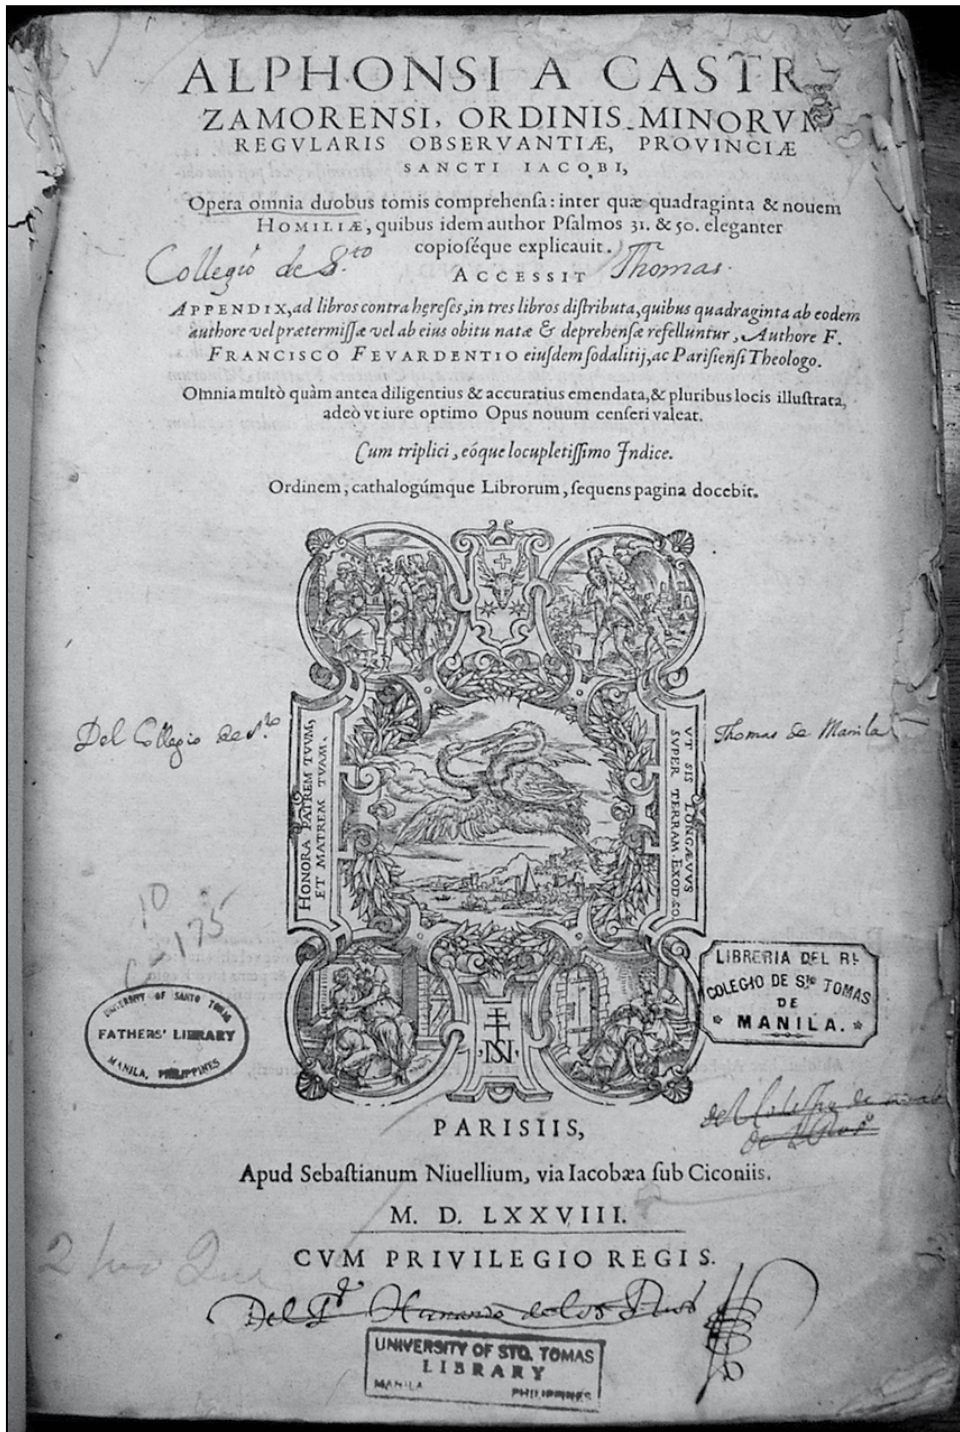 ALPHONSI A CASTR
ZAMORENSI, ORDINIS MINORVM
REGVLARIS OBSERVANTIÆ, PROVINCIÆ
SANCTI IACOBI,
Opera omnia duobus tomis comprehensa: inter quæ quadraginta & nouem
HOMILIÆ, quibus idem author Psalmos 31. & 50. eleganter
copioséque explicauit.
Collegio de S.to Thomas.
ACCESSIT
APPENDIX, ad libros contra hęreses, in tres libros distributa, quibus quadraginta ab eodem
authore vel prætermissæ vel ab eius obitu natæ & deprehensæ refelluntur, Authore F.
FRANCISCO FEVARDENTIO eiusdem sodalitij, ac Parisiensi Theologo.
Omnia multò quàm antea diligentius & accuratius emendata, & pluribus locis illustrata,
adeò vt iure optimo Opus nouum censeri valeat.
Cum triplici, eóque locupletissimo Indice.
Ordinem, cathalogúmque Librorum, sequens pagina docebit.
HONORA PATREM TVVM,
ET MATREM TVAM.
VT SIS LONGÆVVS
SVPER TERRAM. EXOD. 20
Del Collegio de S.to Thomas de Manila
10
175
UNIVERSITY OF SANTO TOMAS
FATHERS' LIBRARY
MANILA, PHILIPPINES
LIBRERIA DEL RL
COLEGIO DE STO TOMAS
DE
MANILA.
SN
PARISIIS,
Apud Sebastianum Niuellium, via Iacobæa sub Ciconiis.
M. D. LXXVIII.
CVM PRIVILEGIO REGIS.
UNIVERSITY OF STO. TOMAS
LIBRARY
MANILA PHILIPPINES